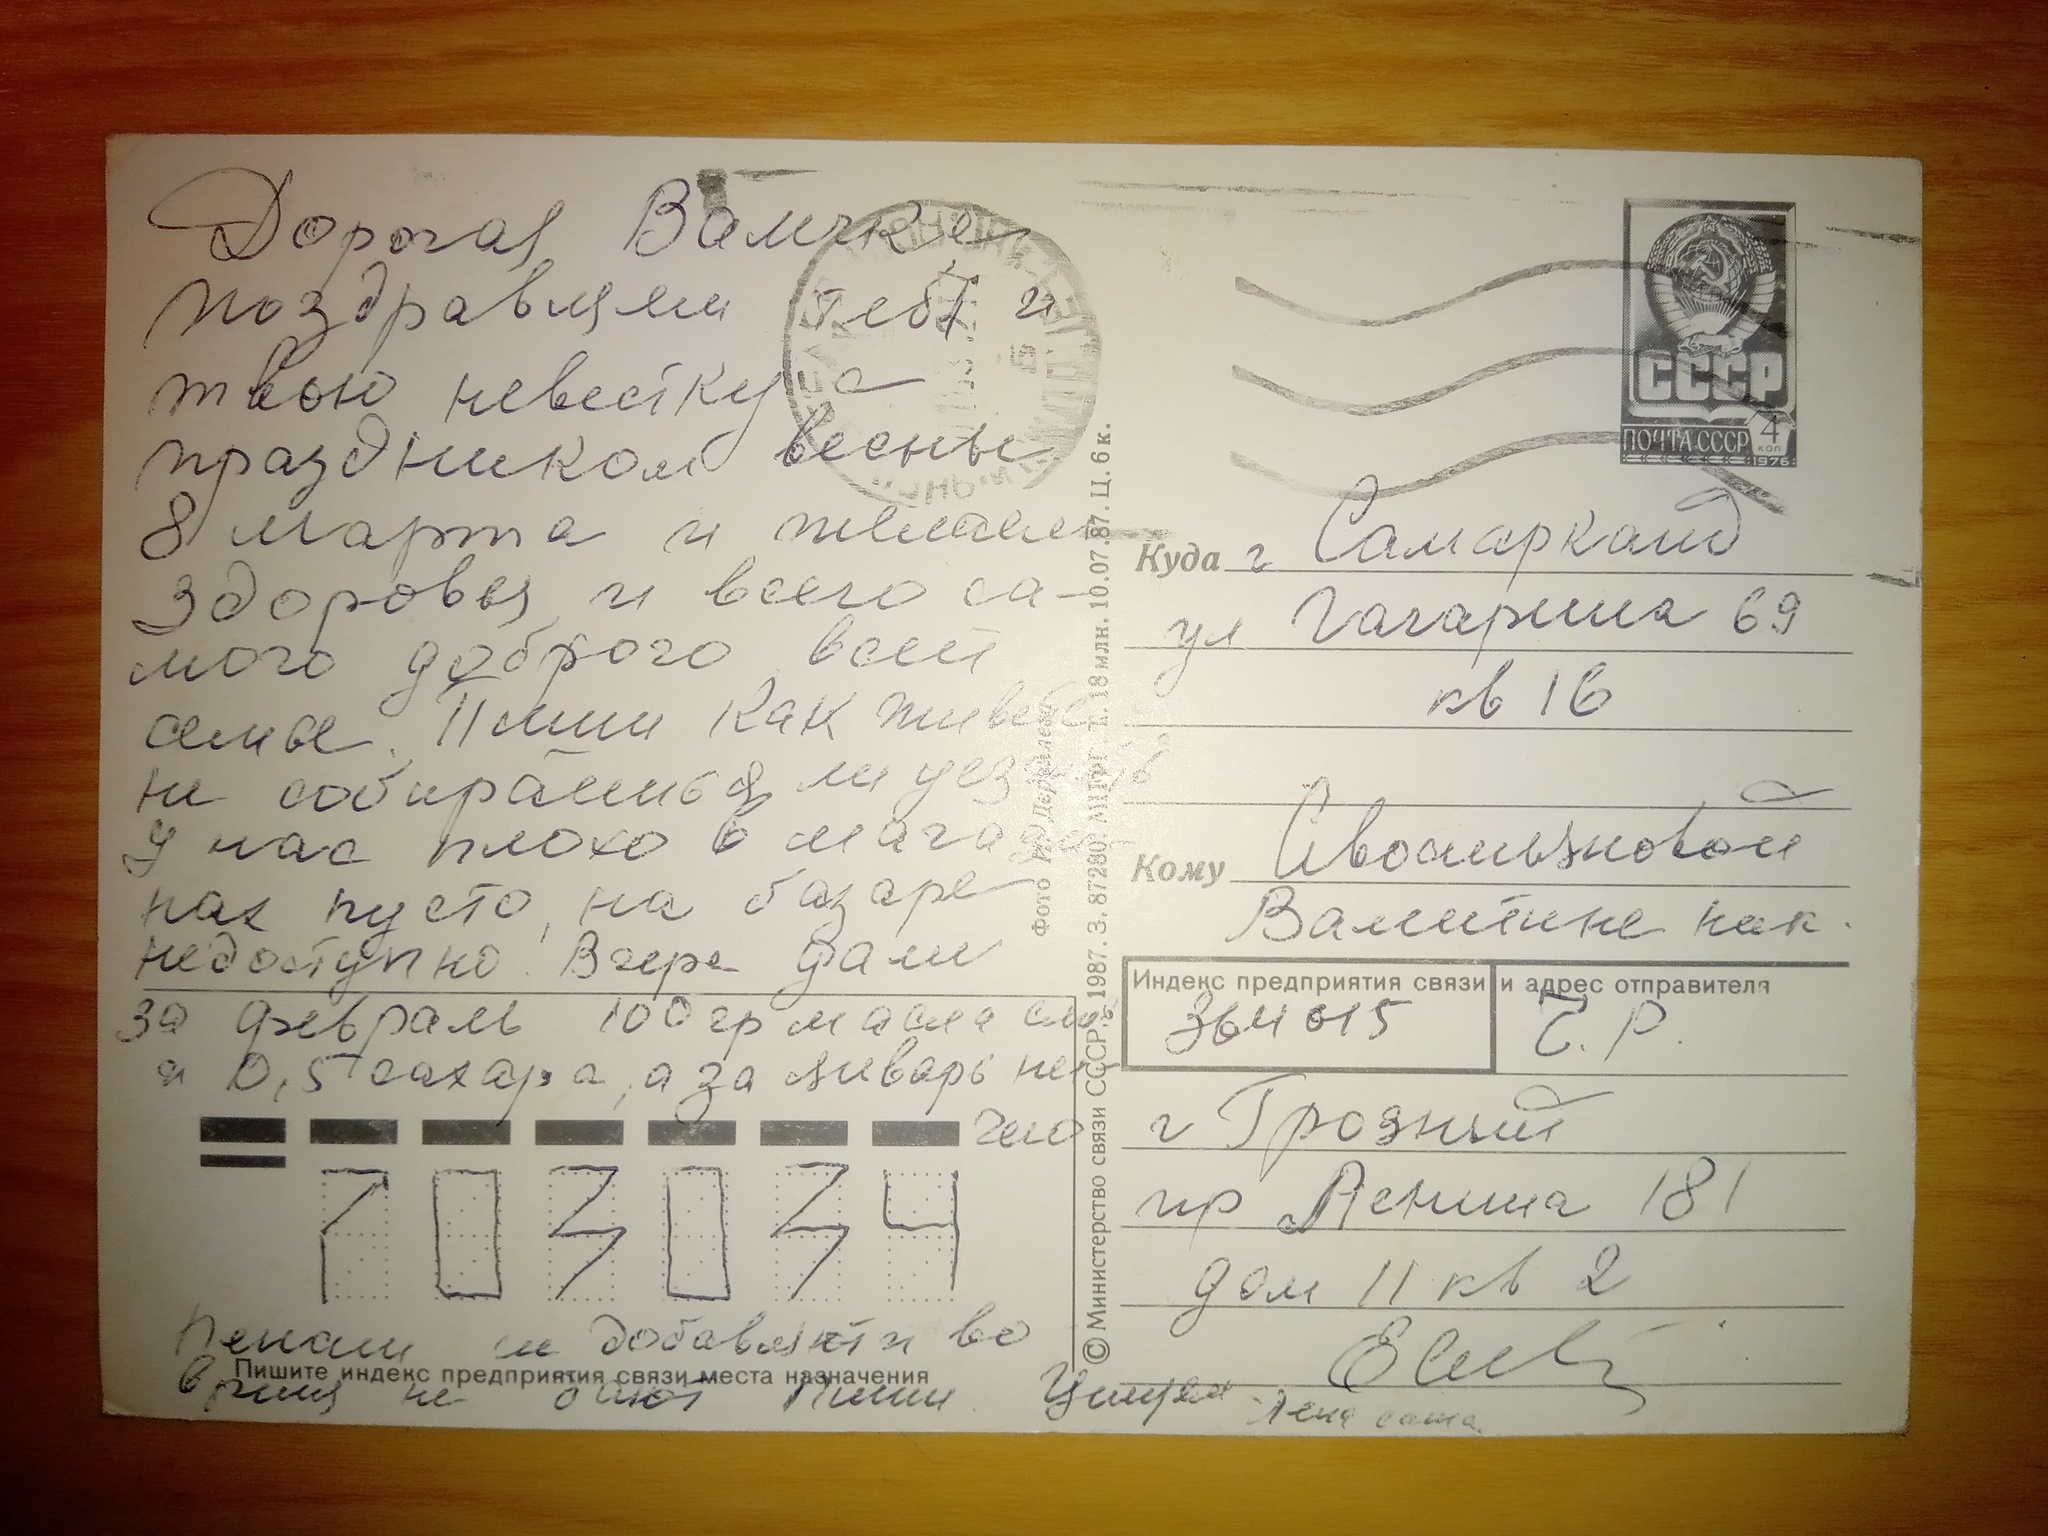 Дорогая Валичке
поздравляем тебя и
твою невестку с
праздником весны
8 марта и желаем
здоровья и всего са-
мого доброго всей
семье. Пиши как живете
не собираетесь ли уезжать
У нас плохо в магази-
нах пусто, на базаре
недоступно. Вчера дали
за февраль 100 гр масла
и 0,5 сахара, а за январь ни-
чего
703034
Пенсии не добавляют и во
время не дают Пиши. Целуем
Лена саша.
Пишите индекс предприятия связи места назначения
Фото
© Министерство связи СССР, 1987. З. 87280. ППФГ. Т. 18 млн. 10.07.87. Ц. 6 к.
СССР
ПОЧТА СССР
4
коп
1976
Куда г Самарканд
ул Гагарина 69
кв 16
Кому
Валентине
Индекс предприятия связи и адрес отправителя
364015 Ч. Р.
г Грозный
пр Ленина 181
дом 11 кв 2